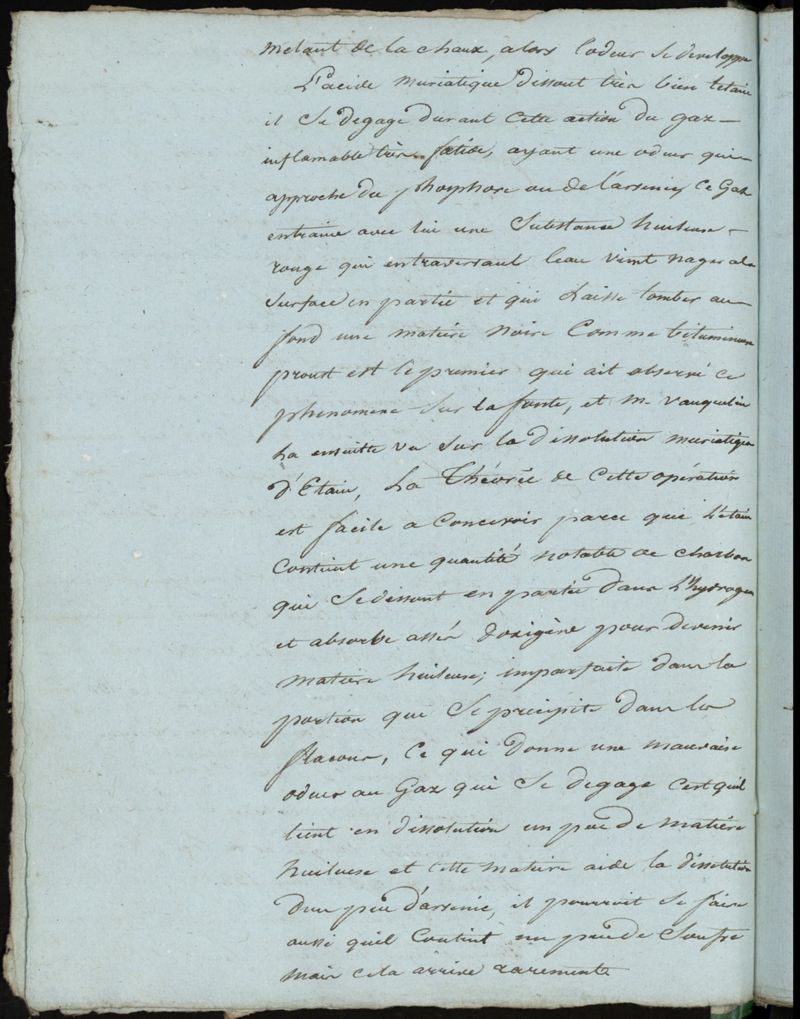 melant de la chaux, alors l'odeur se developpe
L'acide muriatique dissout très bien letain
il se degage durant cette action du gaz
inflamable très fetide, ayant une odeur qui
approche du phosphore ou de l'arsenic, ce Gaz
entraine avec lui une substance huileuse
rouge qui entraversant leau vient nager a la
surface en partie et qui laisse tomber au
fond une matiere noire comme bitumineuse
proust est le premier qui ait observé ce
phenomene sur la fonte, et m. vauquelin
la ensuitte vu sur la dissolution muriatique
d'Etain, La théorie de cette opération
est facile a concevoir parce que L'étain
contient une quantité notable de charbon
qui se dissout en partie dans L'hydrogen
et absorbe assér doxigène pour devenir
matiere huileuse; imparfaite dans la
portion qui se precipite dans les
flacons, ce qui donne une mauvaise
odeur au Gaz qui se degage cest quil
tient en dissolution un peu de matiere
huileuse et cette matiere aide la dissolution
dun peu d'arsenic, il pourroit se faire
aussi quil contint un peu de soufre
mais cela arrive rarement